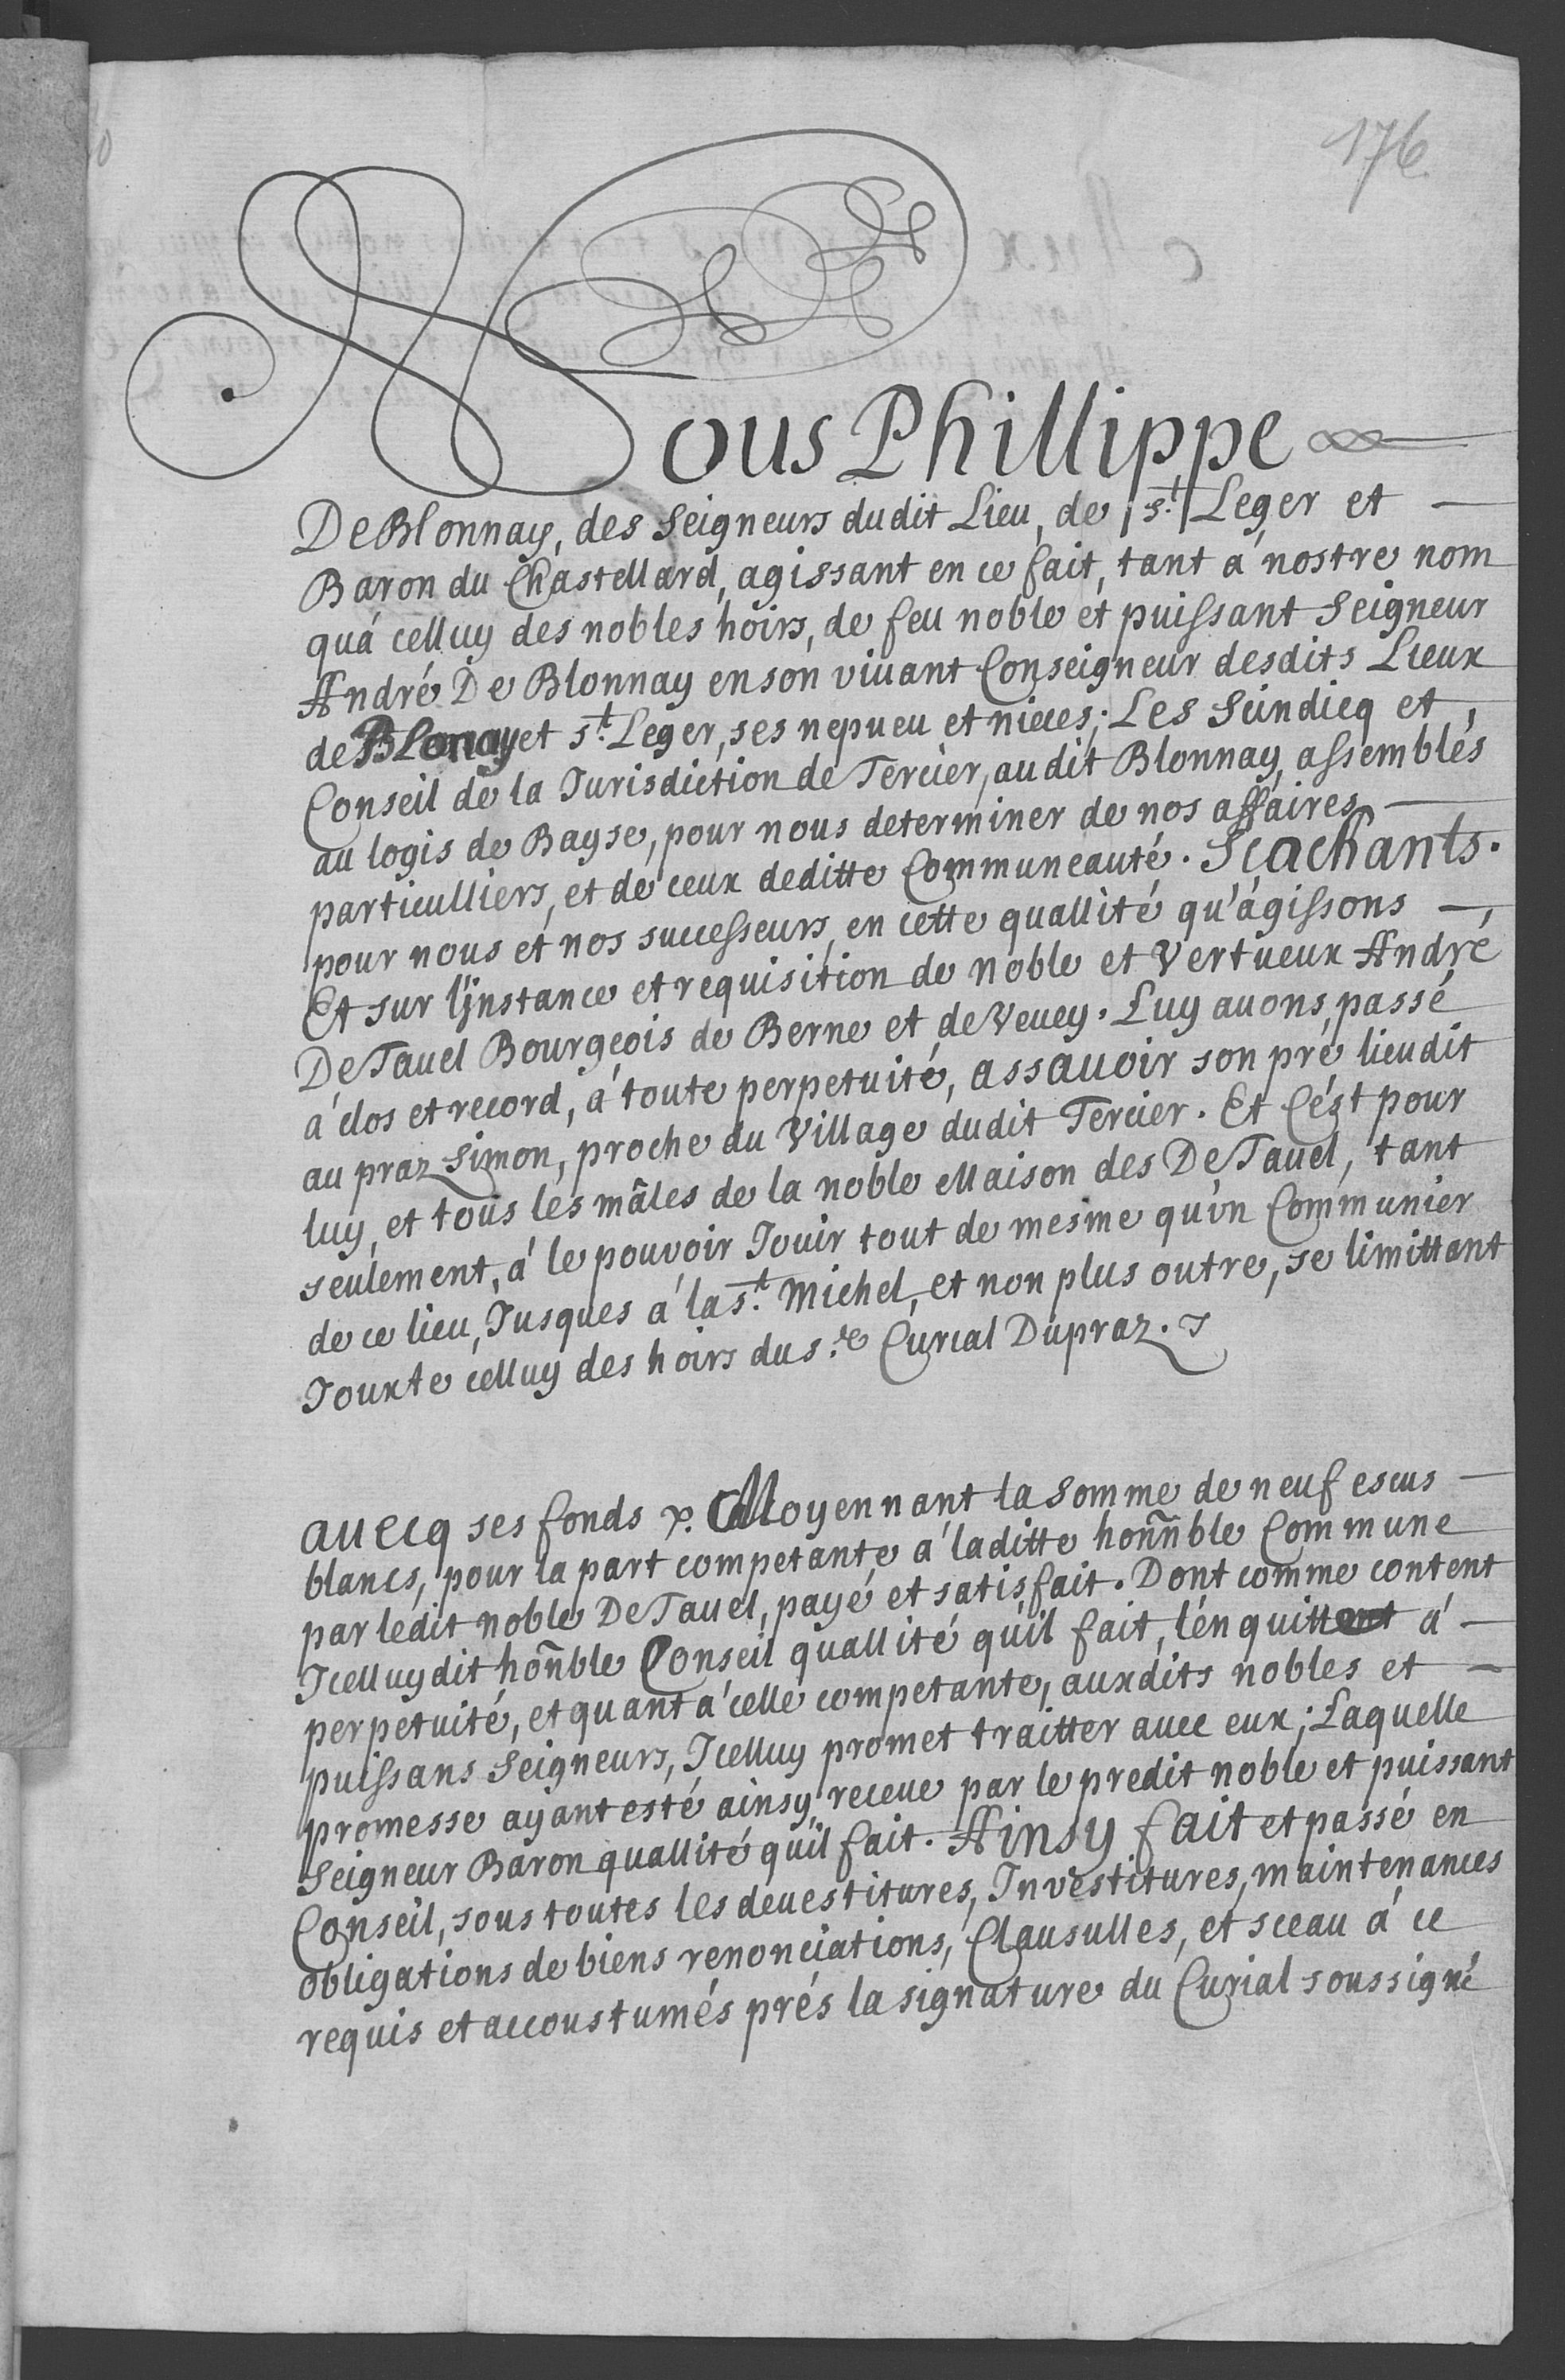 176
Nous Phillippe
De Blonnay, des Seigneurs dudit Lieu, de St. Leger et
Baron du Chastellard, agissant en ce fait, tant á nostre nom
quá celluy des nobles hoirs, de feu noble et puissant Seigneur
André De Blonnay en son viuant Conseigneur desdits Lieux
de Blonay et St. Leger, ses nepueu et nieces; Les Scindicq et
Conseil de la Jurisdiction de Tercier, audit Blonnay, assemblés
au logis de Bayse, pour nous determiner de nos affaires
particulliers, et de ceux deditte Communeauté. Scachants.
pour nous et nos successeurs, en cette quallité qu'ágissons
Et sur l'jnstance et requisition de noble et Vertueux André
De Tauel Bourgeois de Berne et de Veuey. Luy auons, passé
á clos et record, á toute perpetuité, assauoir son pré lieudit
au praz Simon, proche du Village dudit Tercier. Et C'ést pour
luy, et tous les mâles de la noble Maison des De Tauel, tant
seulement, á le pouvoir Jouir tout de mesme qu'vn Communier
de ce lieu, Jusques á la St. Michel, et non plus outre, se limittant
Jouxte celluy des hoirs du sr. Curial Dupraz.
auecq ses fonds &. Moyennant la somme de neuf escus
blancs, pour la part competante á laditte honnble Commune
par ledit noble De Tauel, payé et satisfait. Dont comme content
Jcelluy dit honnble Conseil quallité qu'il fait, l'en quittent á
perpetuité, et quant á celle competante, auxdits nobles et
puissans Seigneurs, Jcelluy promet traitter auec eux; Laquelle
promesse ayant esté ainsy, receue par le predit noble et puissant
Seigneur Baron quallité qu'il fait. Ainsy fait et passé en
Conseil, sous toutes les deuestitures, Investitures, maintenances
obligations de biens renonciations, Clausulles, et sceau á ce
requis et accoustumés prés la signature du Curial soussigné